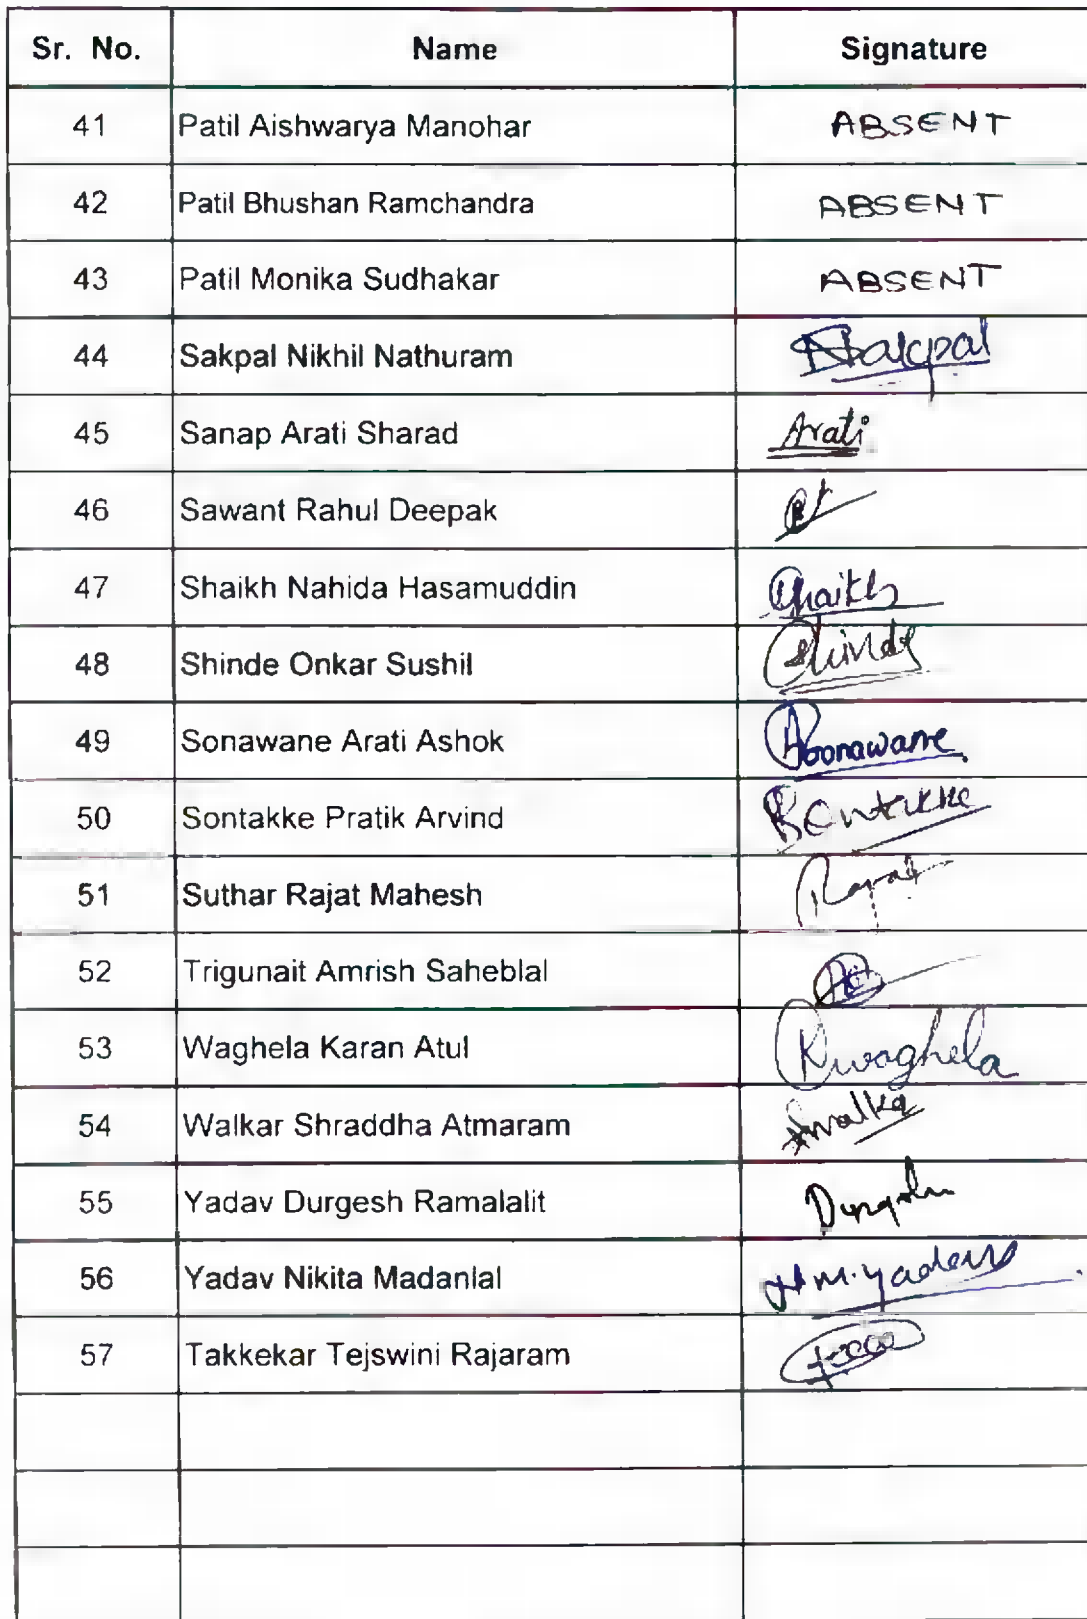 Sr. No. Name Signature
41 Patil Aishwarya Manohar ABSENT
42 Patil Bhushan Ramchandra ABSENT
43 Patil Monika Sudhakar ABSENT
44 Sakpal Nikhil Nathuram
45 Sanap Arati Sharad Arati
46 Sawant Rahul Deepak
47 Shaikh Nahida Hasamuddin Shaikh
48 Shinde Onkar Sushil Shinde
49 Sonawane Arati Ashok ASonawane
50 Sontakke Pratik Arvind
51 Suthar Rajat Mahesh Rajat
52 Trigunait Amrish Saheblal
53 Waghela Karan Atul Kwaghela
54 Walkar Shraddha Atmaram
55 Yadav Durgesh Ramalalit
56 Yadav Nikita Madanlal
57 Takkekar Tejswini Rajaram